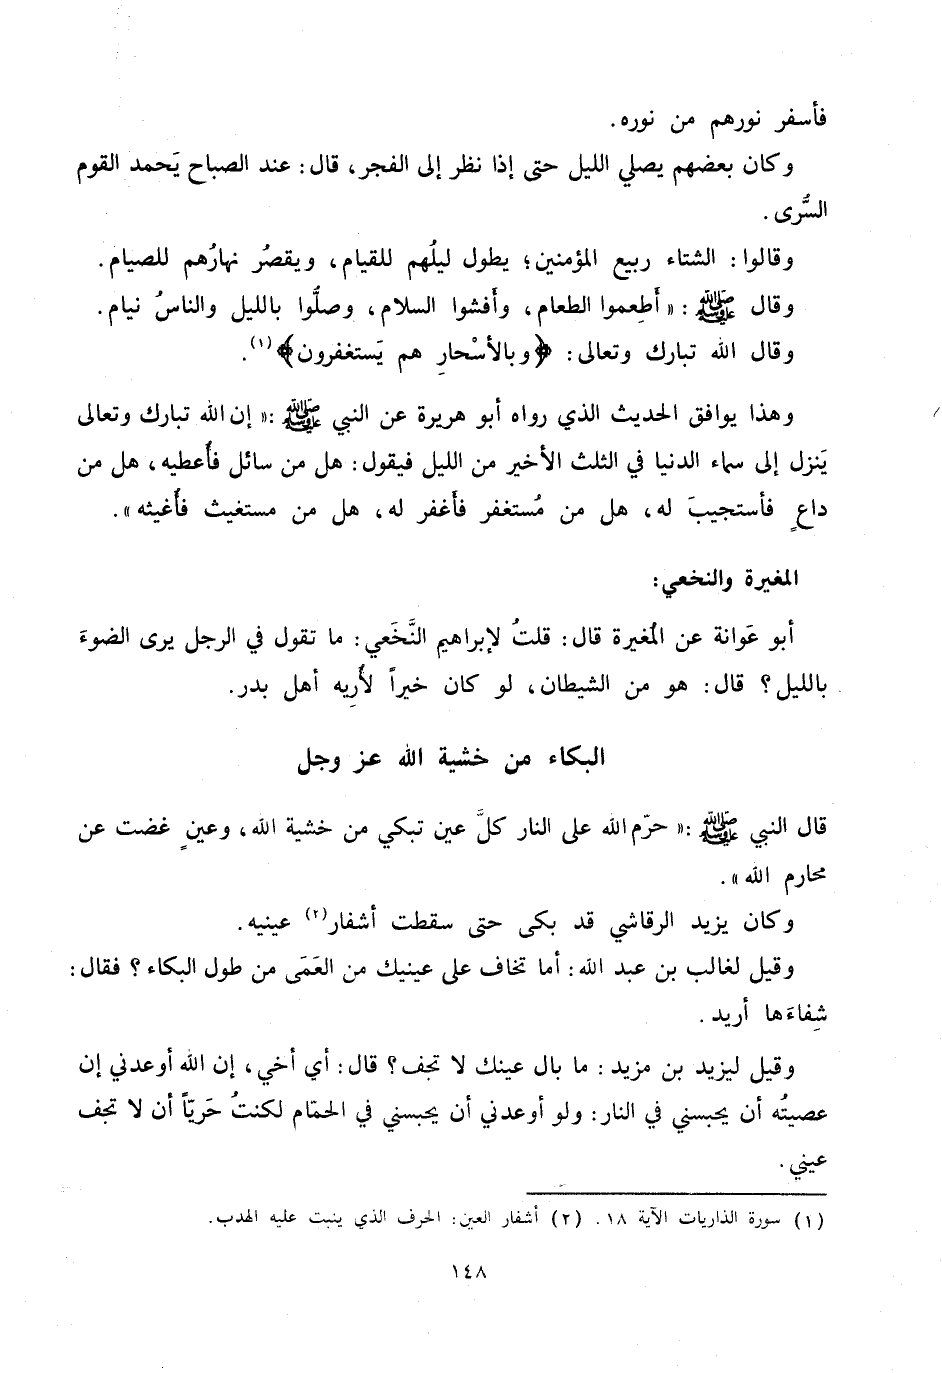 فأسفر نورهم من نوره.
وكان بعضهم يصلي الليل حتى إذا نظر إلى الفجر، قال: عند الصباح يَحمد القوم
السُّرى.
وقالوا: الشتاء ربيع المؤمنين؛ يطول ليلُهم للقيام، ويقصُر نهارُهم للصيام.
وقال ﷺ: «أَطعموا الطعام، وأَفشوا السلام، وصلُّوا بالليل والناسُ نيام.
وقال الله تبارك وتعالى: ﴿وبالأسْحارِ هم يَستغفرون﴾(١).
وهذا يوافق الحديث الذي رواه أبو هريرة عن النبي ﷺ: «إن الله تبارك وتعالى
يَنزل إلى سماء الدنيا في الثلث الأخير من الليل فيقول: هل من سائل فأُعطيه، هل من
داعٍ فأستجيبَ له، هل من مُستغفر فأَغفر له، هل من مستغيث فأُغيثه».
المغيرة والنخعي:
أبو عَوانة عن المُغيرة قال: قلتُ لإبراهيم النَّخَعي: ما تقول في الرجل يرى الضوءَ
بالليل؟ قال: هو من الشيطان، لو كان خيراً لأُرِيه أهل بدر.
البكاء من خشية الله عز وجل
قال النبي ﷺ: «حرّم الله على النار كلَّ عين تبكي من خشية الله، وعينٍ غضت عن
محارم الله».
وكان يزيد الرقاشي قد بكى حتى سقطت أشفار(٢) عينيه.
وقيل لغالب بن عبد الله: أما تخاف على عينيك من العَمَى من طول البكاء؟ فقال:
شِفاءَها أريد.
وقيل ليزيد بن مزيد: ما بال عينك لا تجف؟ قال: أي أخي، إن الله أوعدني إن
عصيتُه أن يحبسني في النار: ولو أوعدني أن يحبسني في الحمّام لكنتُ حَريّاً أن لا تجف
عيني.
(١) سورة الذاريات الآية ١٨. (٢) أشفار العين: الحرف الذي ينبت عليه الهدب.
١٤٨